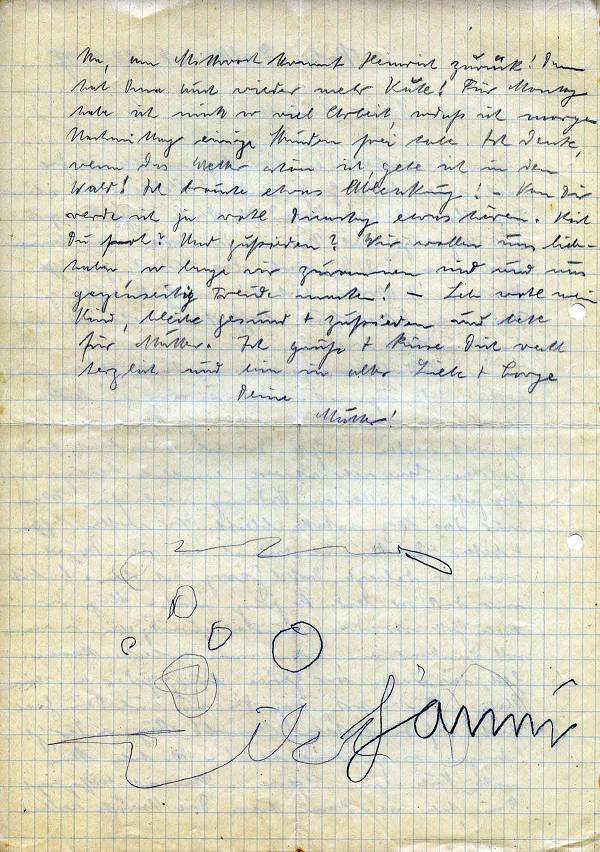 Na, am Mittwoch kommt Heinrich zurück! Dann
hat Oma auch wieder mehr Ruhe! Für Montag
habe ich nicht so viel Arbeit, sodaß ich morgen
Nachmittag einige Stunden frei habe. Ich denke,
wenn das Wetter schön ist, gehe ich in den
Wald! Ich brauche etwas Ablenkung! – Von Dir
werde ich ja wohl Dienstag etwas hören. Bist
Du froh? Und zufrieden? Wir wollen uns lieb-
haben so lange wir zusammen sind und uns
gegenseitig Freude machen! – Leb wohl mein
Kind, bleibe gesund + zufrieden und bete
für Mutter. Ich grüße + küsse Dich recht
herzlich und bin in alter Liebe + Sorge
Deine
Mutter!